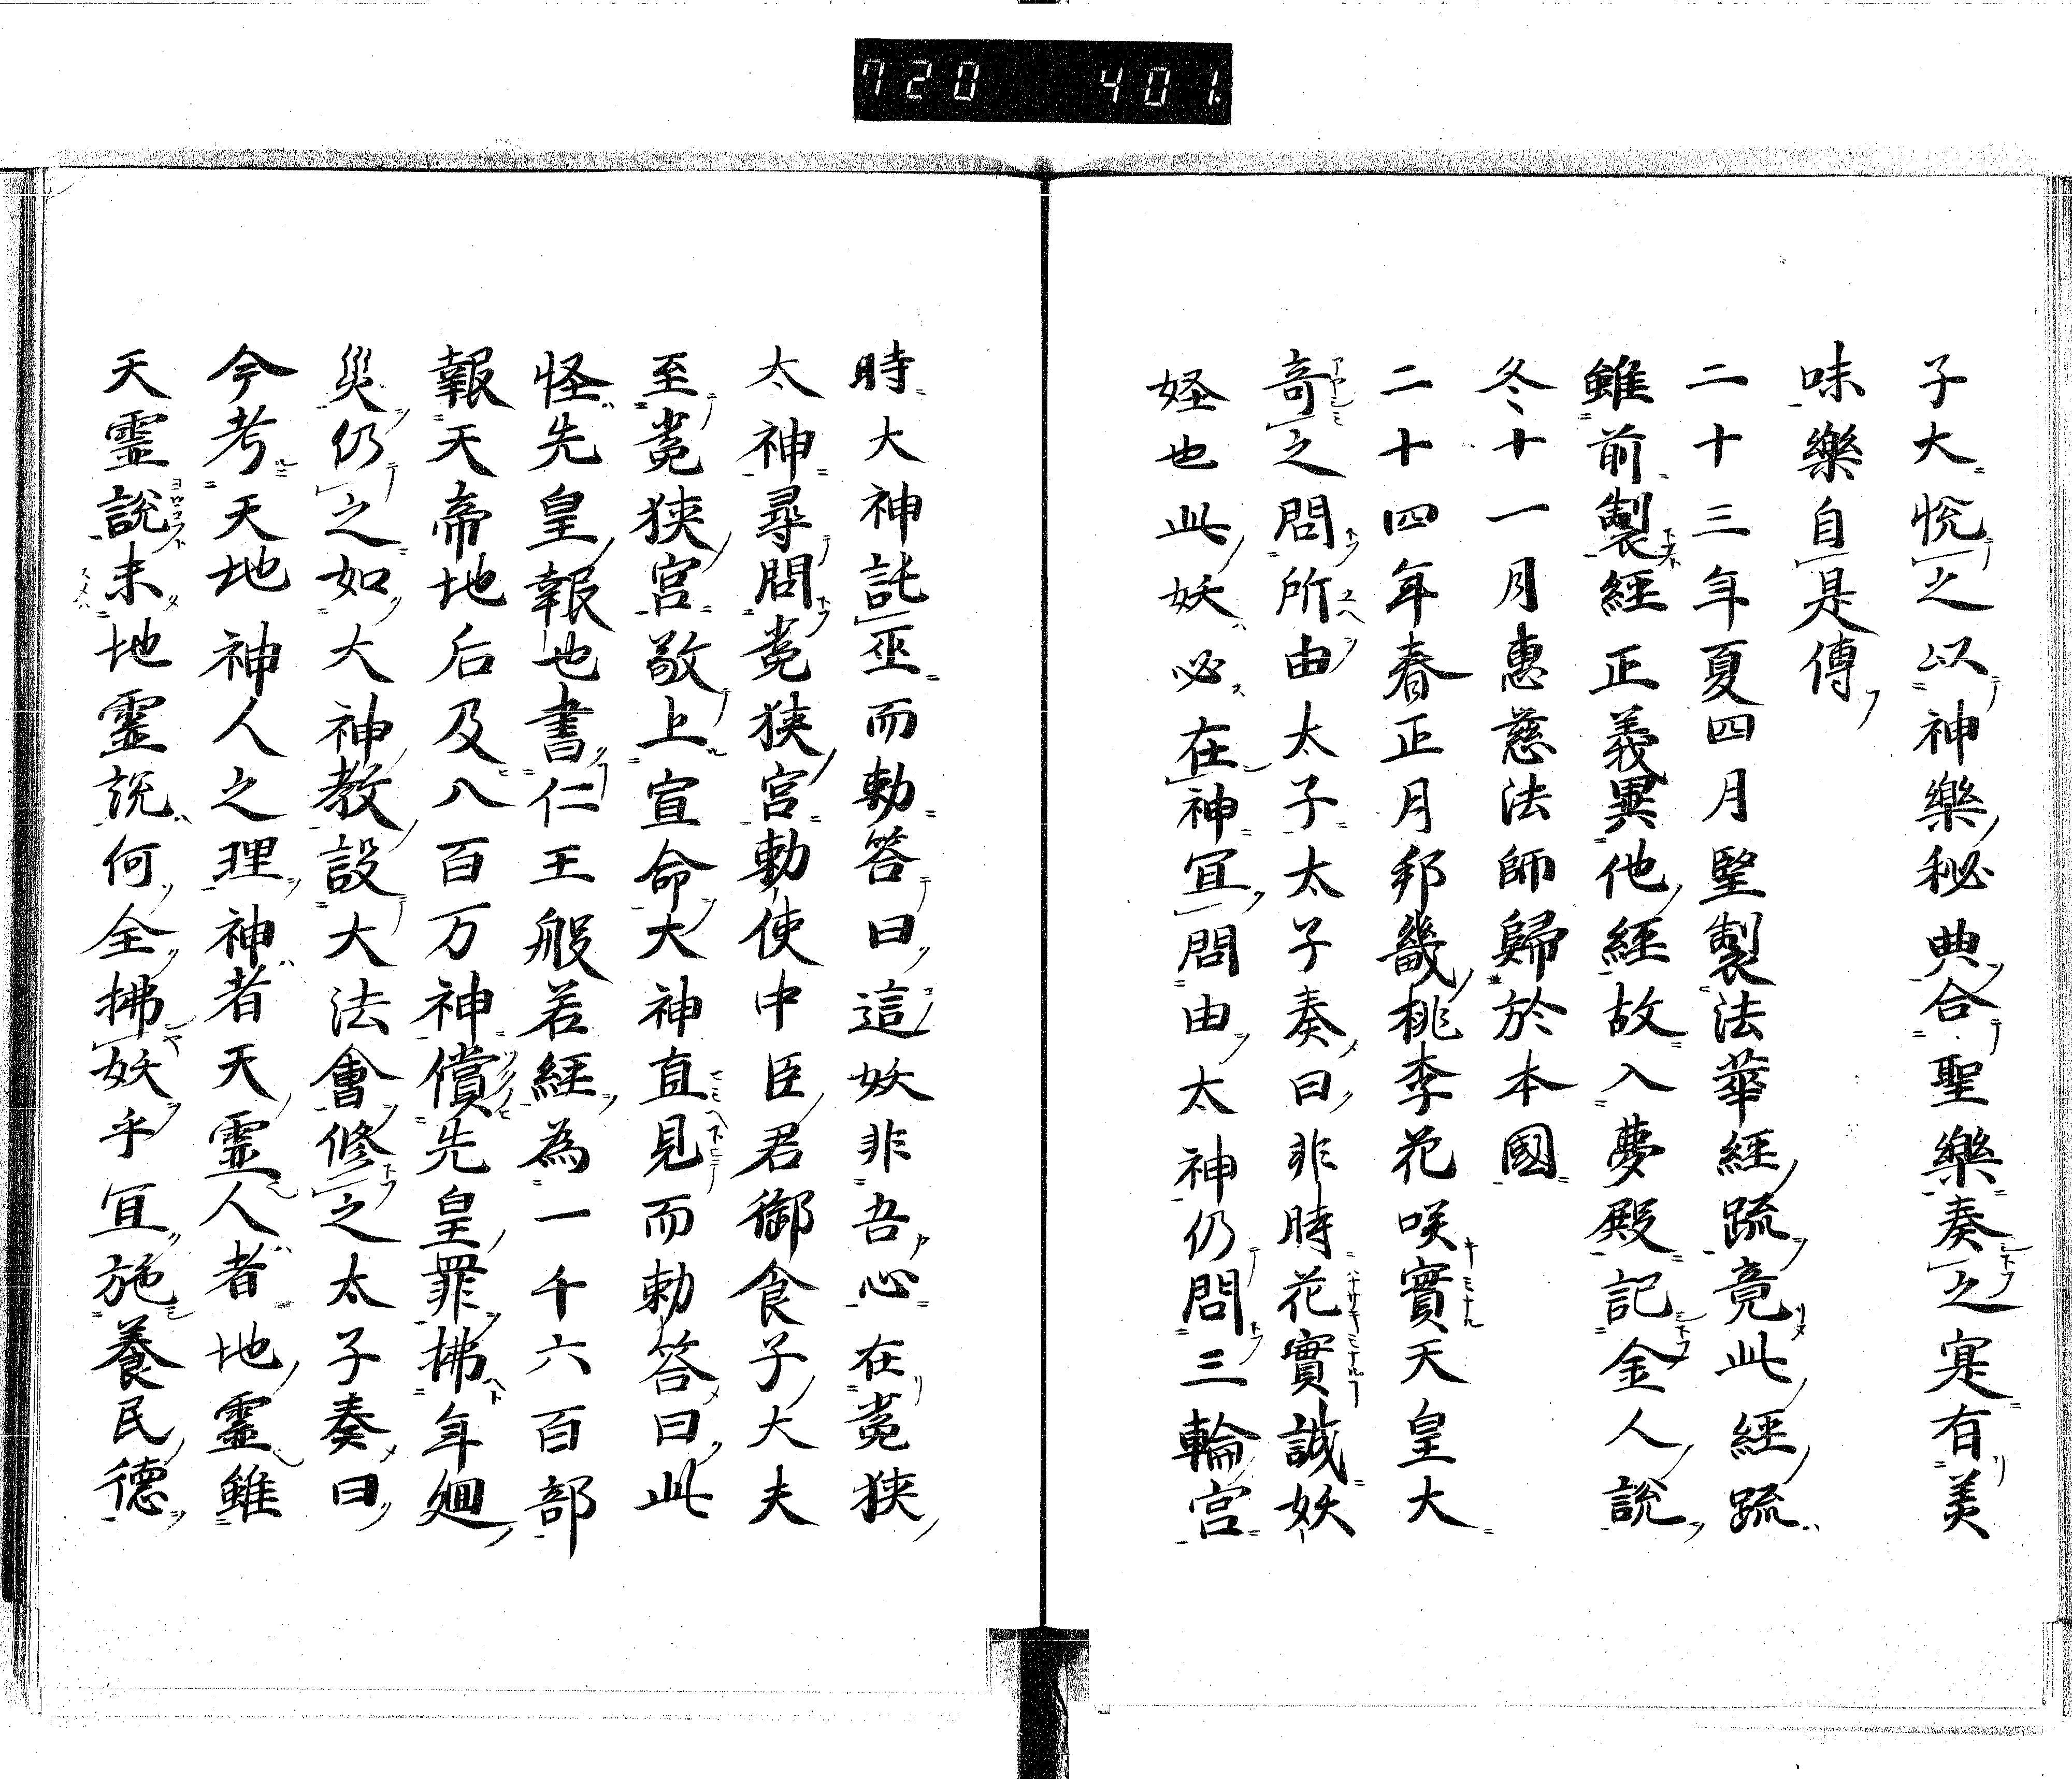 720 401.
子大悦之以神樂秘典合聖樂奏之寔有美
味樂自是傳
二十三年夏四月堅製法華經疏竟此經疏
雖前製經正義異他經故入夢殿記金人說
冬十一月惠慈法師歸於本國
二十四年春正月邦畿桃李花咲實天皇大
奇之問所由太子太子奏曰非時花實誠妖
怪也此妖必在神冝問由太神仍問三輪宮
時大神託巫而勅答曰這妖非吾心在菟狹
太神尋問菟狹宮勅使中臣君御食子大夫
至菟狹宮敬上宣命大神直見而勅答曰此
怪先皇報也書仁王般若經為一千六百部
報天帝地后及八百万神償先皇罪拂年廻
災仍之如大神教設大法會修之太子奏曰
今考天地神人之理神者天靈人者地靈雖
天靈說未地靈說何全拂妖乎冝施養民德